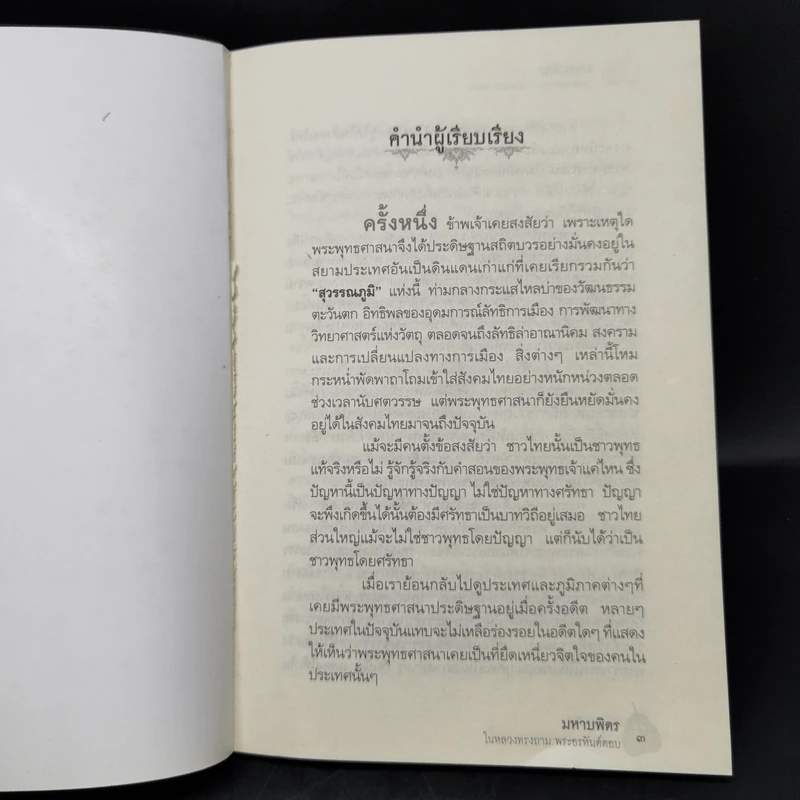 คำนำผู้เรียบเรียง
ครั้งหนึ่ง ข้าพเจ้าเคยสงสัยว่า เพราะเหตุใด
พระพุทธศาสนาจึงได้ประดิษฐานสถิตบวรอย่างมั่นคงอยู่ใน
สยามประเทศอันเป็นดินแดนเก่าแก่ที่เคยเรียกรวมกันว่า
“สุวรรณภูมิ” แห่งนี้ ท่ามกลางกระแสไหลบ่าของวัฒนธรรม
ตะวันตก อิทธิพลของอุดมการณ์ลัทธิการเมือง การพัฒนาทาง
วิทยาศาสตร์แห่งวัตถุ ตลอดจนถึงลัทธิล่าอาณานิคม สงคราม
และการเปลี่ยนแปลงทางการเมือง สิ่งต่างๆ เหล่านี้โหม
กระหน่ำพัดพาถาโถมเข้าใส่สังคมไทยอย่างหนักหน่วงตลอด
ช่วงเวลานับศตวรรษ แต่พระพุทธศาสนาก็ยังยืนหยัดมั่นคง
อยู่ได้ในสังคมไทยมาจนถึงปัจจุบัน
แม้จะมีคนตั้งข้อสงสัยว่า ชาวไทยนั้นเป็นชาวพุทธ
แท้จริงหรือไม่ รู้จักรู้จริงกับคำสอนของพระพุทธเจ้าแค่ไหน ซึ่ง
ปัญหานี้เป็นปัญหาทางปัญญา ไม่ใช่ปัญหาทางศรัทธา ปัญญา
จะพึงเกิดขึ้นได้นั้นต้องมีศรัทธาเป็นบาทวิถีอยู่เสมอ ชาวไทย
ส่วนใหญ่แม้จะไม่ใช่ชาวพุทธโดยปัญญา แต่ก็นับได้ว่าเป็น
ชาวพุทธโดยศรัทธา
เมื่อเราย้อนกลับไปดูประเทศและภูมิภาคต่างๆที่
เคยมีพระพุทธศาสนาประดิษฐานอยู่เมื่อครั้งอดีต หลายๆ
ประเทศในปัจจุบันแทบจะไม่เหลือร่องรอยในอดีตใดๆ ที่แสดง
ให้เห็นว่าพระพุทธศาสนาเคยเป็นที่ยึดเหนี่ยวจิตใจของคนใน
ประเทศนั้นๆ
มหาบพิตร
ในหลวงทรงถาม พระอรหันต์ตอบ ๓